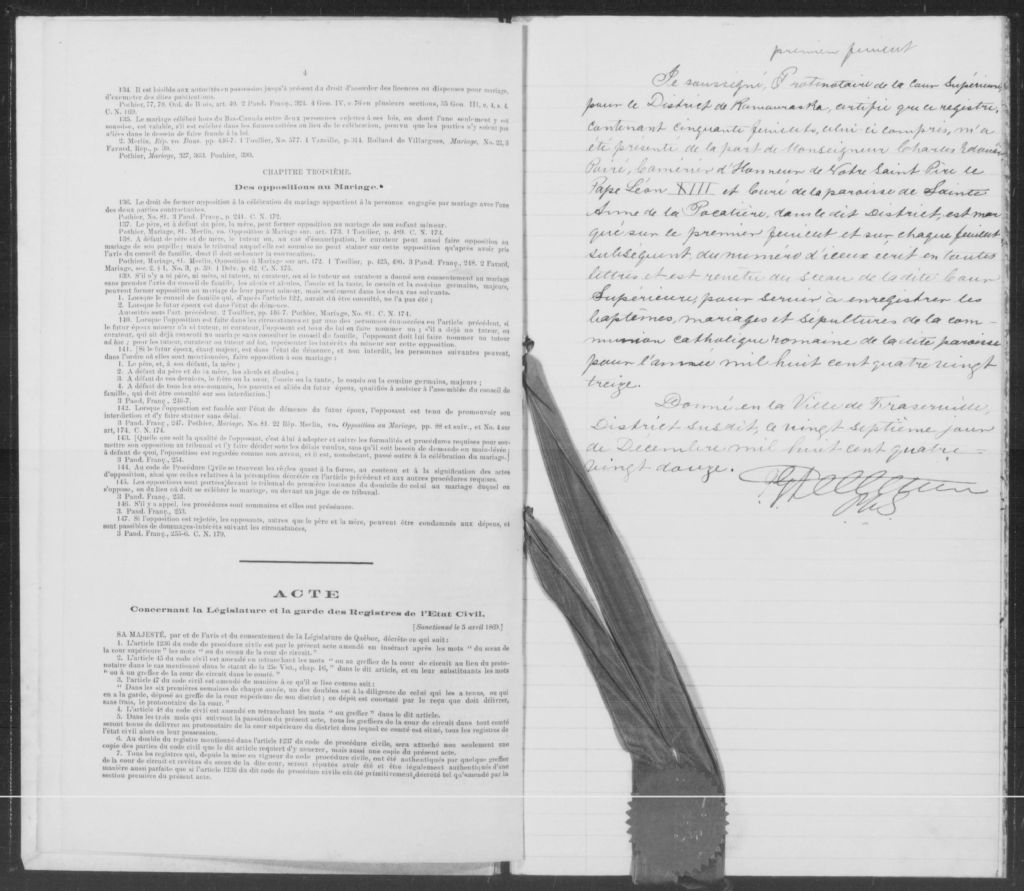 4
134. Il est loisible aux autorités en possession jusqu'à présent du droit d'accorder des licences ou dispenses pour mariage,
d'exempter des dites publications.
Pothier, 77, 78. Ord. de Blois, art. 40. 2 Pand. Franç., 324. 4 Geo. IV, c. 76 en plusieurs sections, 35 Geo. III, c. 4, s. 4.
C. N. 169.
135. Le mariage célébré hors du Bas-Canada entre deux personnes sujettes à ses lois, ou dont l'une seulement y est
soumise, est valable, s'il est célébré dans les formes usitées au lieu de la célébration, pourvu que les parties n'y soient pas
allées dans le dessein de faire fraude à la loi.
2. Merlin, Rép. vo. Bans. pp. 436-7. 1 Toullier, No. 577. 1 Vazeille, p. 314. Rolland de Villargues, Mariage, No. 22, 3
Favard, Rep., p. 30.
Pothier, Mariage, 327, 363. Pothier, 390.
CHAPITRE TROISIÈME.
Des oppositions au Mariage.
136. Le droit de former opposition à la célébration du mariage appartient à la personne engagée par mariage avec l'une
des deux parties contractantes.
Pothier, No. 81. 3 Pand. Franç., p. 241. C. N. 172.
137. Le père, et à défaut du père, la mère, peut former opposition au mariage de son enfant mineur.
Pothier, Mariage, 81. Merlin, vo. Opposition à Mariage sur art. 173. 1 Toullier, p. 489. C. N. 173.
138. A défaut de père et de mère, le tuteur ou, au cas d'émancipation, le curateur peut aussi faire opposition au
mariage de son pupille; mais le tribunal auquel elle est soumise ne peut statuer sur cette opposition qu'après avoir pris
l'avis du conseil de famille, dont il doit ordonner la convocation.
Pothier, Mariage, 81. Merlin, Opposition à Mariage sur art. 172. 1 Toullier, p. 425, 490. 3 Pand. Franç., 248. 2 Favard,
Mariage, sec. 2, § 1, No. 3, p. 59. 1 Delv. p. 62. C. N. 175.
139. S'il n'y a ni père, ni mère, ni tuteur, ni curateur, ou si le tuteur ou curateur a donné son consentement au mariage
sans prendre l'avis du conseil de famille, les aïeuls et aïeules, l'oncle et la tante, le cousin et la cousine germains, majeurs,
peuvent former opposition au mariage de leur parent mineur, mais seulement dans les deux cas suivants.
1. Lorsque le conseil de famille qui, d'après l'article 122, aurait dû être consulté, ne l'a pas été;
2. Lorsque le futur époux est dans l'état de démence.
Autorités sous l'art. précédent. 2 Toullier, pp. 446-7. Pothier, Mariage, No. 81. C. N. 174.
140. Lorsque l'opposition est faite dans les circonstances et par une des personnes énumérées en l'article précédent, si
le futur époux mineur n'a ni tuteur, ni curateur, l'opposant est tenu de lui en faire nommer un; s'il a déjà un tuteur, ou
curateur, qui ait déjà consenti au mariage sans consulter le conseil de famille, l'opposant doit lui faire nommer un tuteur
ad hoc; pour les tuteur, curateur ou tuteur ad hoc, représenter les intérêts du mineur sur cette opposition.
141. [Si le futur époux, étant majeur, est dans l'état de démence, et non interdit, les personnes suivantes peuvent,
dans l'ordre où elles sont mentionnées, faire opposition à son mariage:
1. Le père, et, à son défaut, la mère;
2. A défaut du père et de la mère, les aïeuls et aïeules;
3. A défaut de ces derniers, le frère ou la sœur, l'oncle ou la tante, le cousin ou la cousine germains, majeurs;
4. A défaut de tous les sus-nommés, les parents et alliés du futur époux, qualifiés à assister à l'assemblée du conseil de
famille, qui doit être consulté sur son interdiction.]
3 Pand. Franç., 246-7.
142. Lorsque l'opposition est fondée sur l'état de démence du futur époux, l'opposant est tenu de promouvoir son
interdiction et d'y faire statuer sans délai.
3 Pand. Franç., 247. Pothier, Mariage, No. 81. 22 Rép. Merlin, vo. Opposition au Mariage, pp. 88 et suiv., et No. 4 sur
art. 174. C. N. 174.
143. [Quelle que soit la qualité de l'opposant, c'est à lui à adopter et suivre les formalités et procédures requises pour sou-
mettre son opposition au tribunal et l'y faire décider sous les délais voulus, sans qu'il soit besoin de demande en main-levée;
à défaut de quoi, l'opposition est regardée comme non avenu, et il est, nonobstant, passé outre à la célébration du mariage.]
3 Pand. Franç., 254.
144. Au code de Procédure Civile se trouvent les règles quant à la forme, au contenu et à la signification des actes
d'opposition, ainsi que celles relatives à la péremption décrétée en l'article précédent et aux autres procédures requises.
145. Les oppositions sont portées devant le tribunal de première instance du domicile de celui au mariage duquel on
s'oppose, ou du lieu où doit se célébrer le mariage, ou devant un juge de ce tribunal.
3 Pand. Franç., 253.
146. S'il y a appel, les procédures sont sommaires et elles ont préséance.
3 Pand. Franç., 253.
147. Si l'opposition est rejetée, les opposants, autres que le père et la mère, peuvent être condamnés aux dépens, et
sont passibles de dommages-intérêts suivant les circonstances.
3 Pand. Franç., 255-6. C. N. 179.
ACTE
Concernant la Législature et la garde des Registres de l'Etat Civil.
[Sanctionné le 5 avril 1869.]
SA MAJESTÉ, par et de l'avis et du consentement de la Législature de Québec, décrète ce qui suit:
1. L'article 1236 du code de procédure civile est par le présent acte amendé en insérant après les mots "du sceau de
la cour supérieure" les mots "ou du sceau de la cour de circuit."
2. L'article 45 du code civil est amendé en retranchant les mots "ou au greffier de la cour de circuit au lieu du proto-
notaire dans le cas mentionné dans le statut de la 25e Vict., chap. 16," dans le dit article, et en leur substituant les mots
"ou à un greffier de la cour de circuit dans le comté."
3. l'article 47 du code civil est amendé de manière à ce qu'il se lise comme suit:
"Dans les six premières semaines de chaque année, un des doubles est à la diligence de celui qui les a tenus, ou qui
en a la garde, déposé au greffe de la cour supérieure de son district; ce dépôt est constaté par le reçu que doit délivrer,
sans frais, le protonotaire de la cour."
4. L'article 48 du code civil est amendé en retranchant les mots "ou greffier" dans le dit article.
5. Dans les trois mois qui suivront la passation du présent acte, tous les greffiers de la cour de circuit dans tout comté
seront tenus de délivrer au protonotaire de la cour supérieure du district dans lequel ce comté est situé, tous les registres de
l'état civil alors en leur possession.
6. Au double du registre mentionné dans l'article 1237 du code de procédure civile, sera attaché non seulement une
copie des parties du code civil que le dit article requiert d'y annexer, mais aussi une copie du présent acte.
7. Tous les registres qui, depuis la mise en vigueur du code procédure civile, ont été authentiqués par quelque greffier
de la cour de circuit et revêtus du sceau de la dite cour, seront réputés avoir été et être légalement authentiqués d'une
manière aussi parfaite que si l'article 1236 du dit code de procédure civile eût été primitivement décrété tel qu'amendé par la
section première du présent acte.
premier feuillet
Je soussigné, Protonotaire de la Cour Supérieure
pour le District de Kamouraska, certifie que ce registre,
contenant cinquante feuillets, celui ci compris, m'a
été présenté de la part de Monseigneur Charles Edouard
Poiré, Camérier d'Honneur de Notre Saint Père le
Pape Léon XIII et Curé de la paroisse de Sainte
Anne de la Pocatière, dans le dit District, est mar
qué sur le premier feuillet et sur chaque feuillet
subséquent du numéro d'iceux écrit en toutes
lettres et est revêtu du sceau de la dite Cour
Supérieure, pour servir à enregistrer les
baptêmes, mariages et sépultures de la com-
munion catholique romaine de la dite paroisse
pour l'année mil huit cent quatre vingt
treize.
Donné en la Ville de Fraserville,
District susdit, le vingt septième jour
de Décembre mil huit cent quatre-
vingt douze.